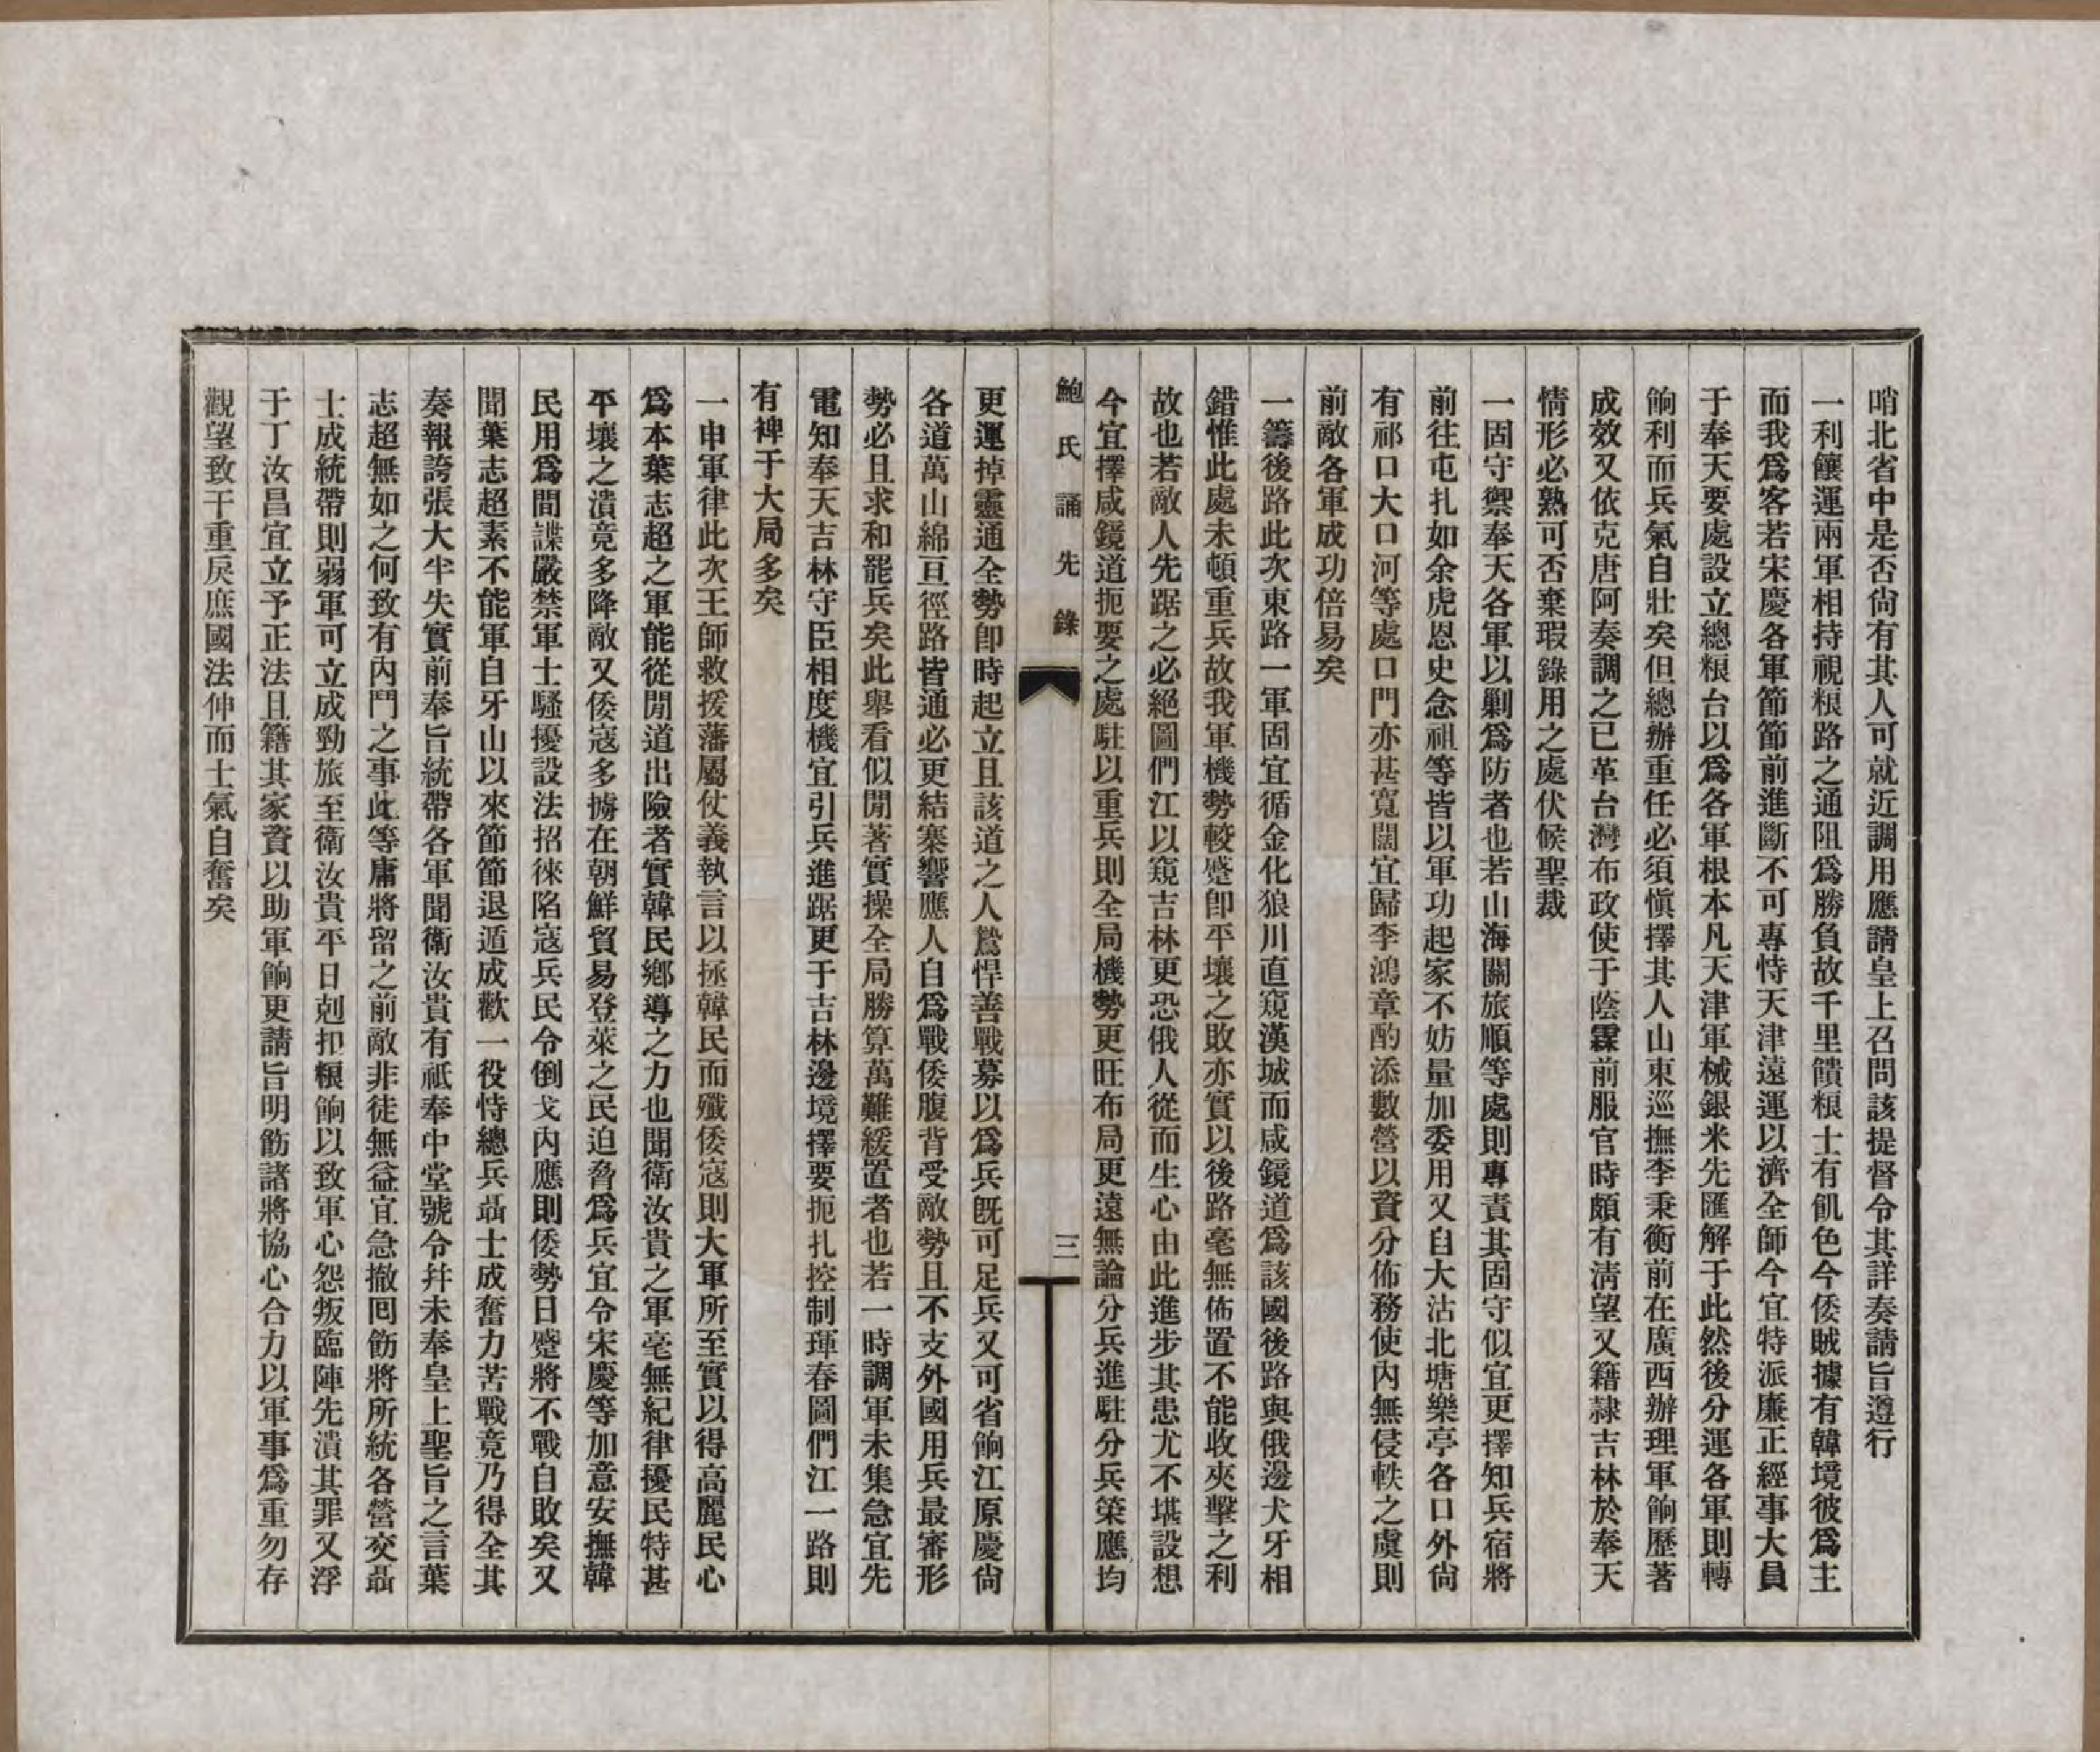 哨北省中是否尙有其人可就近調用應請皇上召問該提督令其詳奏請旨遵行
一利饟運兩軍相持視粮路之通阻爲勝負故千里饋粮士有飢色今倭賊據有韓境彼爲主
而我爲客若宋慶各軍節節前進斷不可專恃天津遠運以濟全師今宜特派廉正經事大員
于奉天要處設立總粮台以爲各軍根本凡天津軍械銀米先匯解于此然後分運各軍則轉
餉利而兵氣自壯矣但總辦重任必須愼擇其人山東巡撫李秉衡前在廣西辦理軍餉歷著
成效又依克唐阿奏調之已革台灣布政使于蔭霖前服官時頗有淸望又籍隷吉林於奉天
情形必熟可否棄瑕錄用之處伏候聖裁
一固守禦奉天各軍以剿爲防者也若山海關旅順等處則專責其固守似宜更擇知兵宿將
前往屯扎如余虎恩史念祖等皆以軍功起家不妨量加委用又自大沽北塘樂亭各口外尙
有祁口大口河等處口門亦甚寬闊宜歸李鴻章酌添數營以資分佈務使內無侵軼之虞則
前敵各軍成功倍易矣
一籌後路此次東路一軍固宜循金化狼川直窺漢城而咸鏡道爲該國後路與俄邊犬牙相
錯惟此處未頓重兵故我軍機勢較蹙卽平壤之敗亦實以後路毫無佈置不能收夾擊之利
故也若敵人先踞之必絕圖們江以窺吉林更恐俄人從而生心由此進步其患尤不堪設想
今宜擇咸鏡道扼要之處駐以重兵則全局機勢更旺布局更遠無論分兵進駐分兵策應均
鮑氏誦先錄 三
更運掉靈通全勢卽時起立且該道之人鷙悍善戰募以爲兵旣可足兵又可省餉江原慶尙
各道萬山綿亘徑路皆通必更結寨響應人自爲戰倭腹背受敵勢且不支外國用兵最審形
勢必且求和罷兵矣此舉看似閒著實操全局勝算萬難緩置者也若一時調軍未集急宜先
電知奉天吉林守臣相度機宜引兵進踞更于吉林邊境擇要扼扎控制琿春圖們江一路則
有裨于大局多矣
一申軍律此次王師救援藩屬仗義執言以拯韓民而殲倭寇則大軍所至實以得高麗民心
爲本葉志超之軍能從閒道出險者實韓民鄉導之力也聞衛汝貴之軍毫無紀律擾民特甚
平壤之潰竟多降敵又倭寇多擄在朝鮮貿易登萊之民迫脅爲兵宜令宋慶等加意安撫韓
民用爲間諜嚴禁軍士騷擾設法招徠陷寇兵民令倒戈內應則倭勢日蹙將不戰自敗矣又
聞葉志超素不能軍自牙山以來節節退遁成歡一役恃總兵聶士成奮力苦戰竟乃得全其
奏報誇張大半失實前奉旨統帶各軍聞衛汝貴有祗奉中堂號令幷未奉皇上聖旨之言葉
志超無如之何致有內鬥之事此等庸將留之前敵非徒無益宜急撤囘飭將所統各營交聶
士成統帶則弱軍可立成勁旅至衛汝貴平日剋扣粮餉以致軍心怨叛臨陣先潰其罪又浮
于丁汝昌宜立予正法且籍其家資以助軍餉更請旨明飭諸將協心合力以軍事爲重勿存
觀望致干重戾庶國法伸而士氣自奮矣